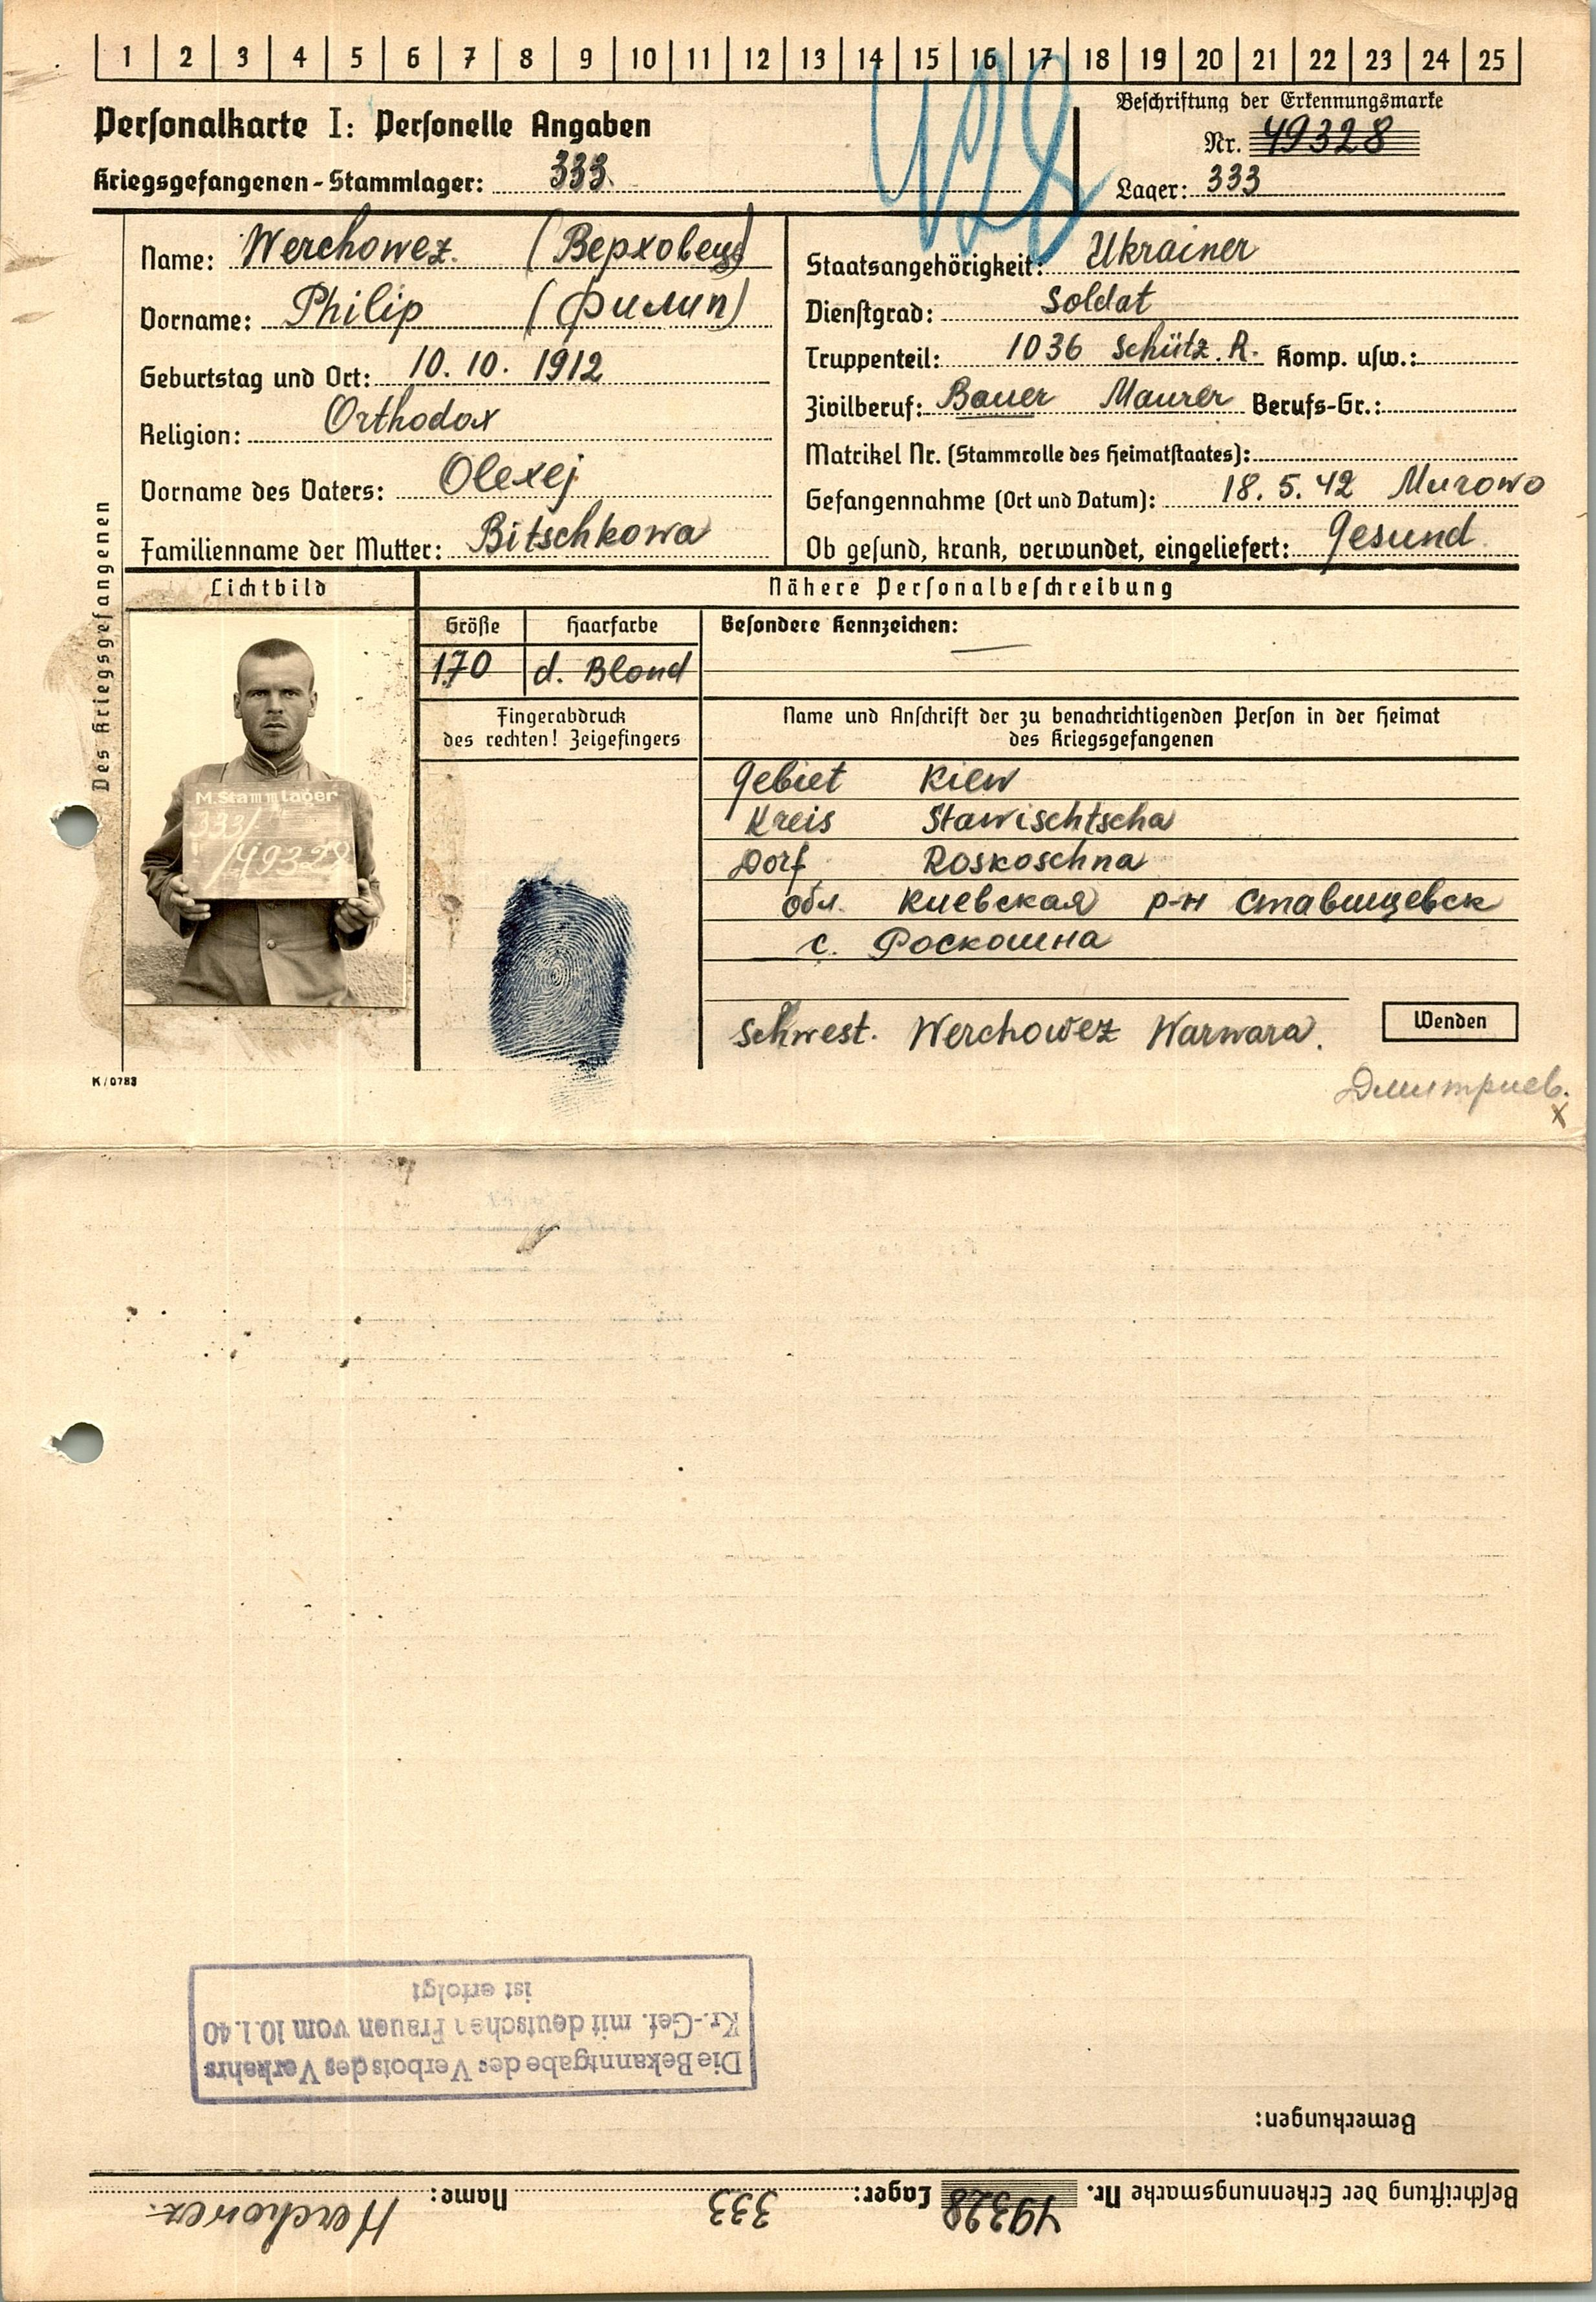 1 2 3 4 5 6 7 8 9 10 11 12 13 14 15 16 17 18 19 20 21 22 23 24 25
428
Personalkarte I: Personelle Angaben
Kriegsgefangenen-Stammlager: 333.
Beschriftung der Erkennungsmarke
Nr. 49328
Lager: 333
Des Kriegsgefangenen
Name: Werchowez. (Верховец)
Vorname: Philip (Филип)
Geburtstag und Ort: 10. 10. 1912
Religion: Orthodox
Vorname des Vaters: Olexej
Familienname der Mutter: Bitschkowa
Staatsangehörigkeit: Ukrainer
Dienstgrad: Soldat
Truppenteil: 1036 Schütz. R. Komp. usw.:
Zivilberuf: Bauer Maurer Berufs-Gr.:
Matrikel Nr. (Stammrolle des Heimatstaates):
Gefangennahme (Ort und Datum): 18. 5. 42 Murowo
Ob gesund, krank, verwundet, eingeliefert: Gesund
Lichtbild
M.Stammlager
333/
/49328
Nähere Personalbeschreibung
Größe
170
Haarfarbe
d. Blond
Besondere Kennzeichen: —
Fingerabdruck
des rechten! Zeigefingers
Name und Anschrift der zu benachrichtigenden Person in der Heimat
des Kriegsgefangenen
Gebiet Kiew
Kreis Stawischtscha
Dorf Roskoschna
обл. Киевская р-н Ставищевск
с. Роскошна
Schwest. Werchowez Warwara.
Wenden
K/0783
Дмитриев.
x
Beschriftung der Erkennungsmarke Nr. 49328 Lager: 333 Name: Werchowez.
Bemerkungen:
Die Bekanntgabe des Verbots des Verkehrs
Kr.-Gef. mit deutschen Frauen vom 10.1.40
ist erfolgt